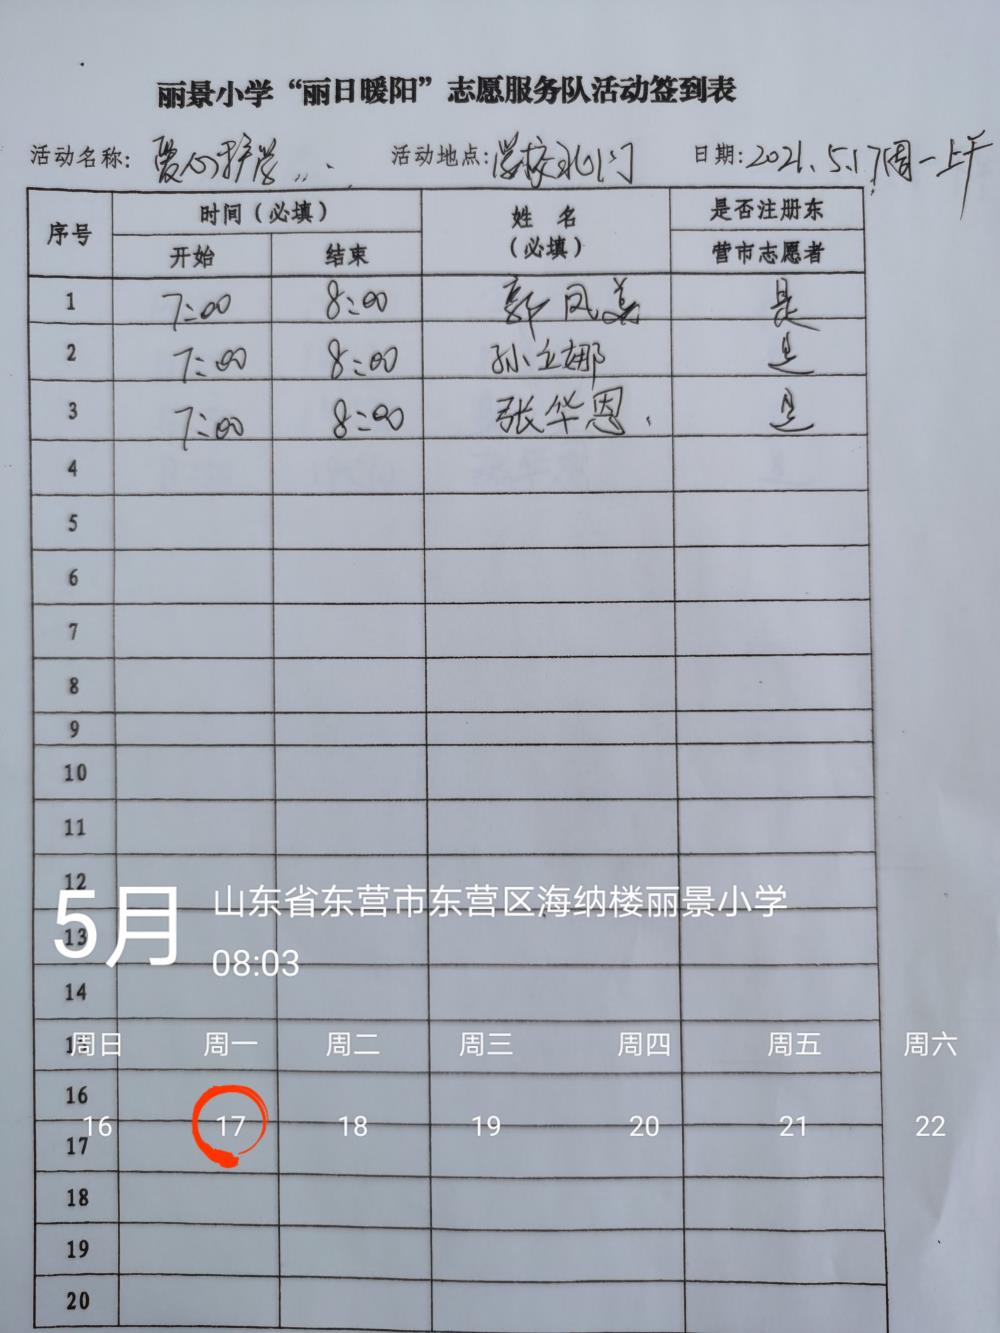 丽景小学“丽日暖阳”志愿服务队活动签到表
活动名称: 爱心护学 活动地点: 学校北门 日期: 2021.5.17周一上午
序号 时间（必填） 姓名（必填） 是否注册东营市志愿者
开始 结束
1 7:00 8:00 郭凤 是
2 7:00 8:00 孙立娜 是
3 7:00 8:00 张华恩 是
4
5
6
7
8
9
10
11
12
5月 山东省东营市东营区海纳楼丽景小学
13
08:03
14
15
周日 周一 周二 周三 周四 周五 周六
16
16 17 18 19 20 21 22
17
18
19
20